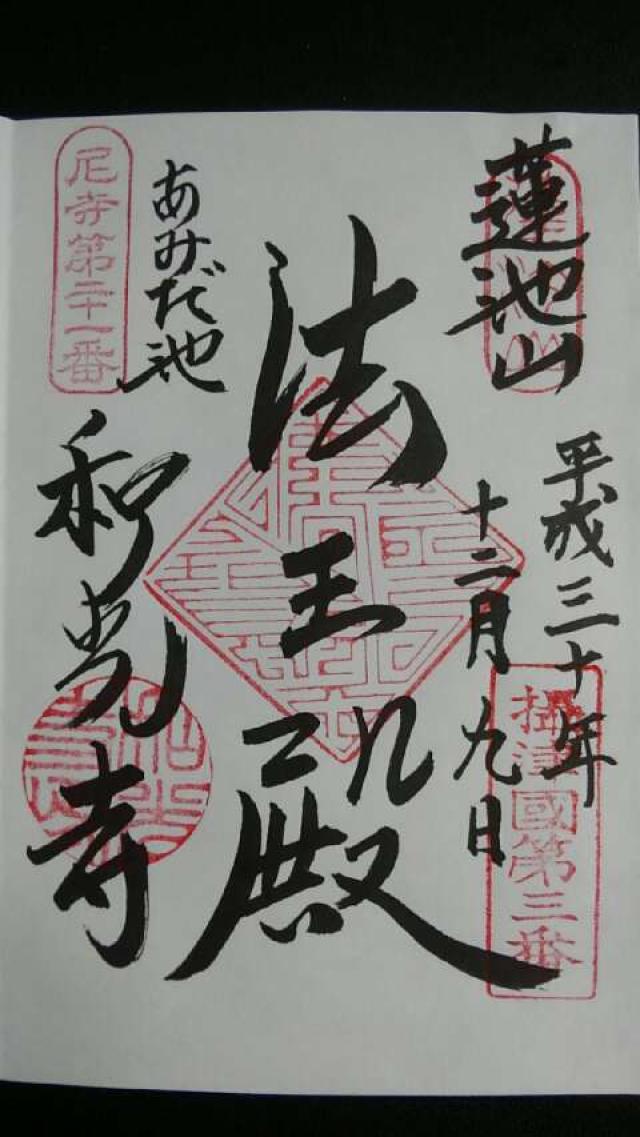 蓮池山
平成三十年
十二月九日
摂津國第三番
法王殿
あみだ池
和光寺
尼寺第二十一番